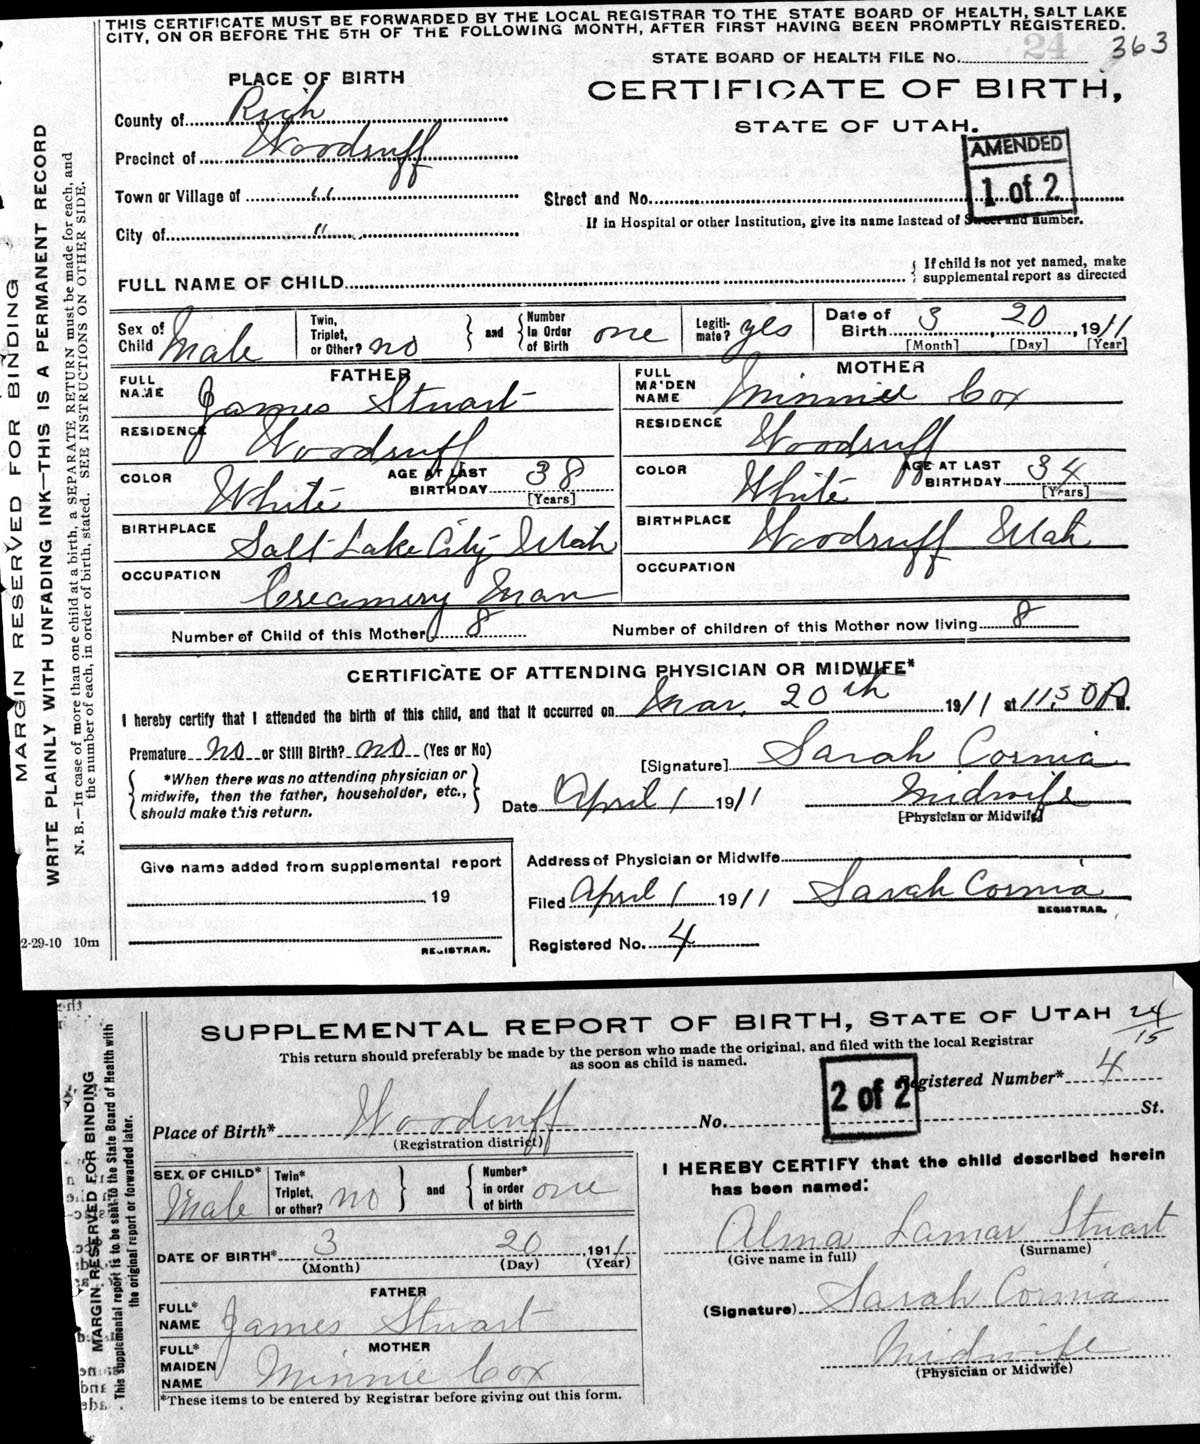 THIS CERTIFICATE MUST BE FORWARDED BY THE LOCAL REGISTRAR TO THE STATE BOARD OF HEALTH, SALT LAKE
CITY, ON OR BEFORE THE 5TH OF THE FOLLOWING MONTH, AFTER FIRST HAVING BEEN PROMPTLY REGISTERED.
24 363
STATE BOARD OF HEALTH FILE No.
PLACE OF BIRTH
CERTIFICATE OF BIRTH,
STATE OF UTAH.
County of Rich
Precinct of Woodruff
AMENDED
1 of 2
Town or Village of "
Street and No.
City of "
If in Hospital or other Institution, give its name instead of Street and number.
FULL NAME OF CHILD
{ If child is not yet named, make
supplemental report as directed
Sex of Child Male
Twin, Triplet, or Other? no } and { Number in Order of Birth one
Legitimate? yes
Date of Birth 3 20, 1911
[Month] [Day] [Year]
FATHER
FULL NAME James Stuart
RESIDENCE Woodruff
COLOR White AGE AT LAST BIRTHDAY 38
[Years]
BIRTHPLACE Salt Lake City Utah
OCCUPATION Creamery Man
MOTHER
FULL MAIDEN NAME Minnie Cox
RESIDENCE Woodruff
COLOR White AGE AT LAST BIRTHDAY 34
[Years]
BIRTHPLACE Woodruff Utah
OCCUPATION
Number of Child of this Mother 8 Number of children of this Mother now living 8
CERTIFICATE OF ATTENDING PHYSICIAN OR MIDWIFE*
I hereby certify that I attended the birth of this child, and that it occurred on Mar. 20th 1911 at 11,50 P.
Premature no or Still Birth? no (Yes or No)
[Signature] Sarah Cornia
{ *When there was no attending physician or
midwife, then the father, householder, etc.,
should make this return. }
Date April 1 1911 Midwife
[Physician or Midwife]
Give name added from supplemental report
19
REGISTRAR.
Address of Physician or Midwife
Filed April 1 1911 Sarah Cornia
REGISTRAR.
Registered No. 4
2-29-10 10m
MARGIN RESERVED FOR BINDING
WRITE PLAINLY WITH UNFADING INK—THIS IS A PERMANENT RECORD
N. B.—In case of more than one child at a birth, a SEPARATE RETURN must be made for each, and
the number of each, in order of birth, stated. SEE INSTRUCTIONS ON OTHER SIDE.
SUPPLEMENTAL REPORT OF BIRTH, STATE OF UTAH 24/15
This return should preferably be made by the person who made the original, and filed with the local Registrar
as soon as child is named.
2 of 2
Registered Number* 4
Place of Birth* Woodruff No. St.
(Registration district)
SEX OF CHILD* Male
Twin* Triplet, or other? no } and { Number* in order of birth one
DATE OF BIRTH* 3 20, 1911
(Month) (Day) (Year)
FATHER
FULL* NAME James Stuart
MOTHER
FULL* MAIDEN NAME Minnie Cox
*These items to be entered by Registrar before giving out this form.
I HEREBY CERTIFY that the child described herein
has been named:
Alma Lamar Stuart
(Give name in full) (Surname)
(Signature) Sarah Cornia
Midwife
(Physician or Midwife)
MARGIN RESERVED FOR BINDING
This supplemental report is to be sent to the State Board of Health with
the original report or forwarded later.